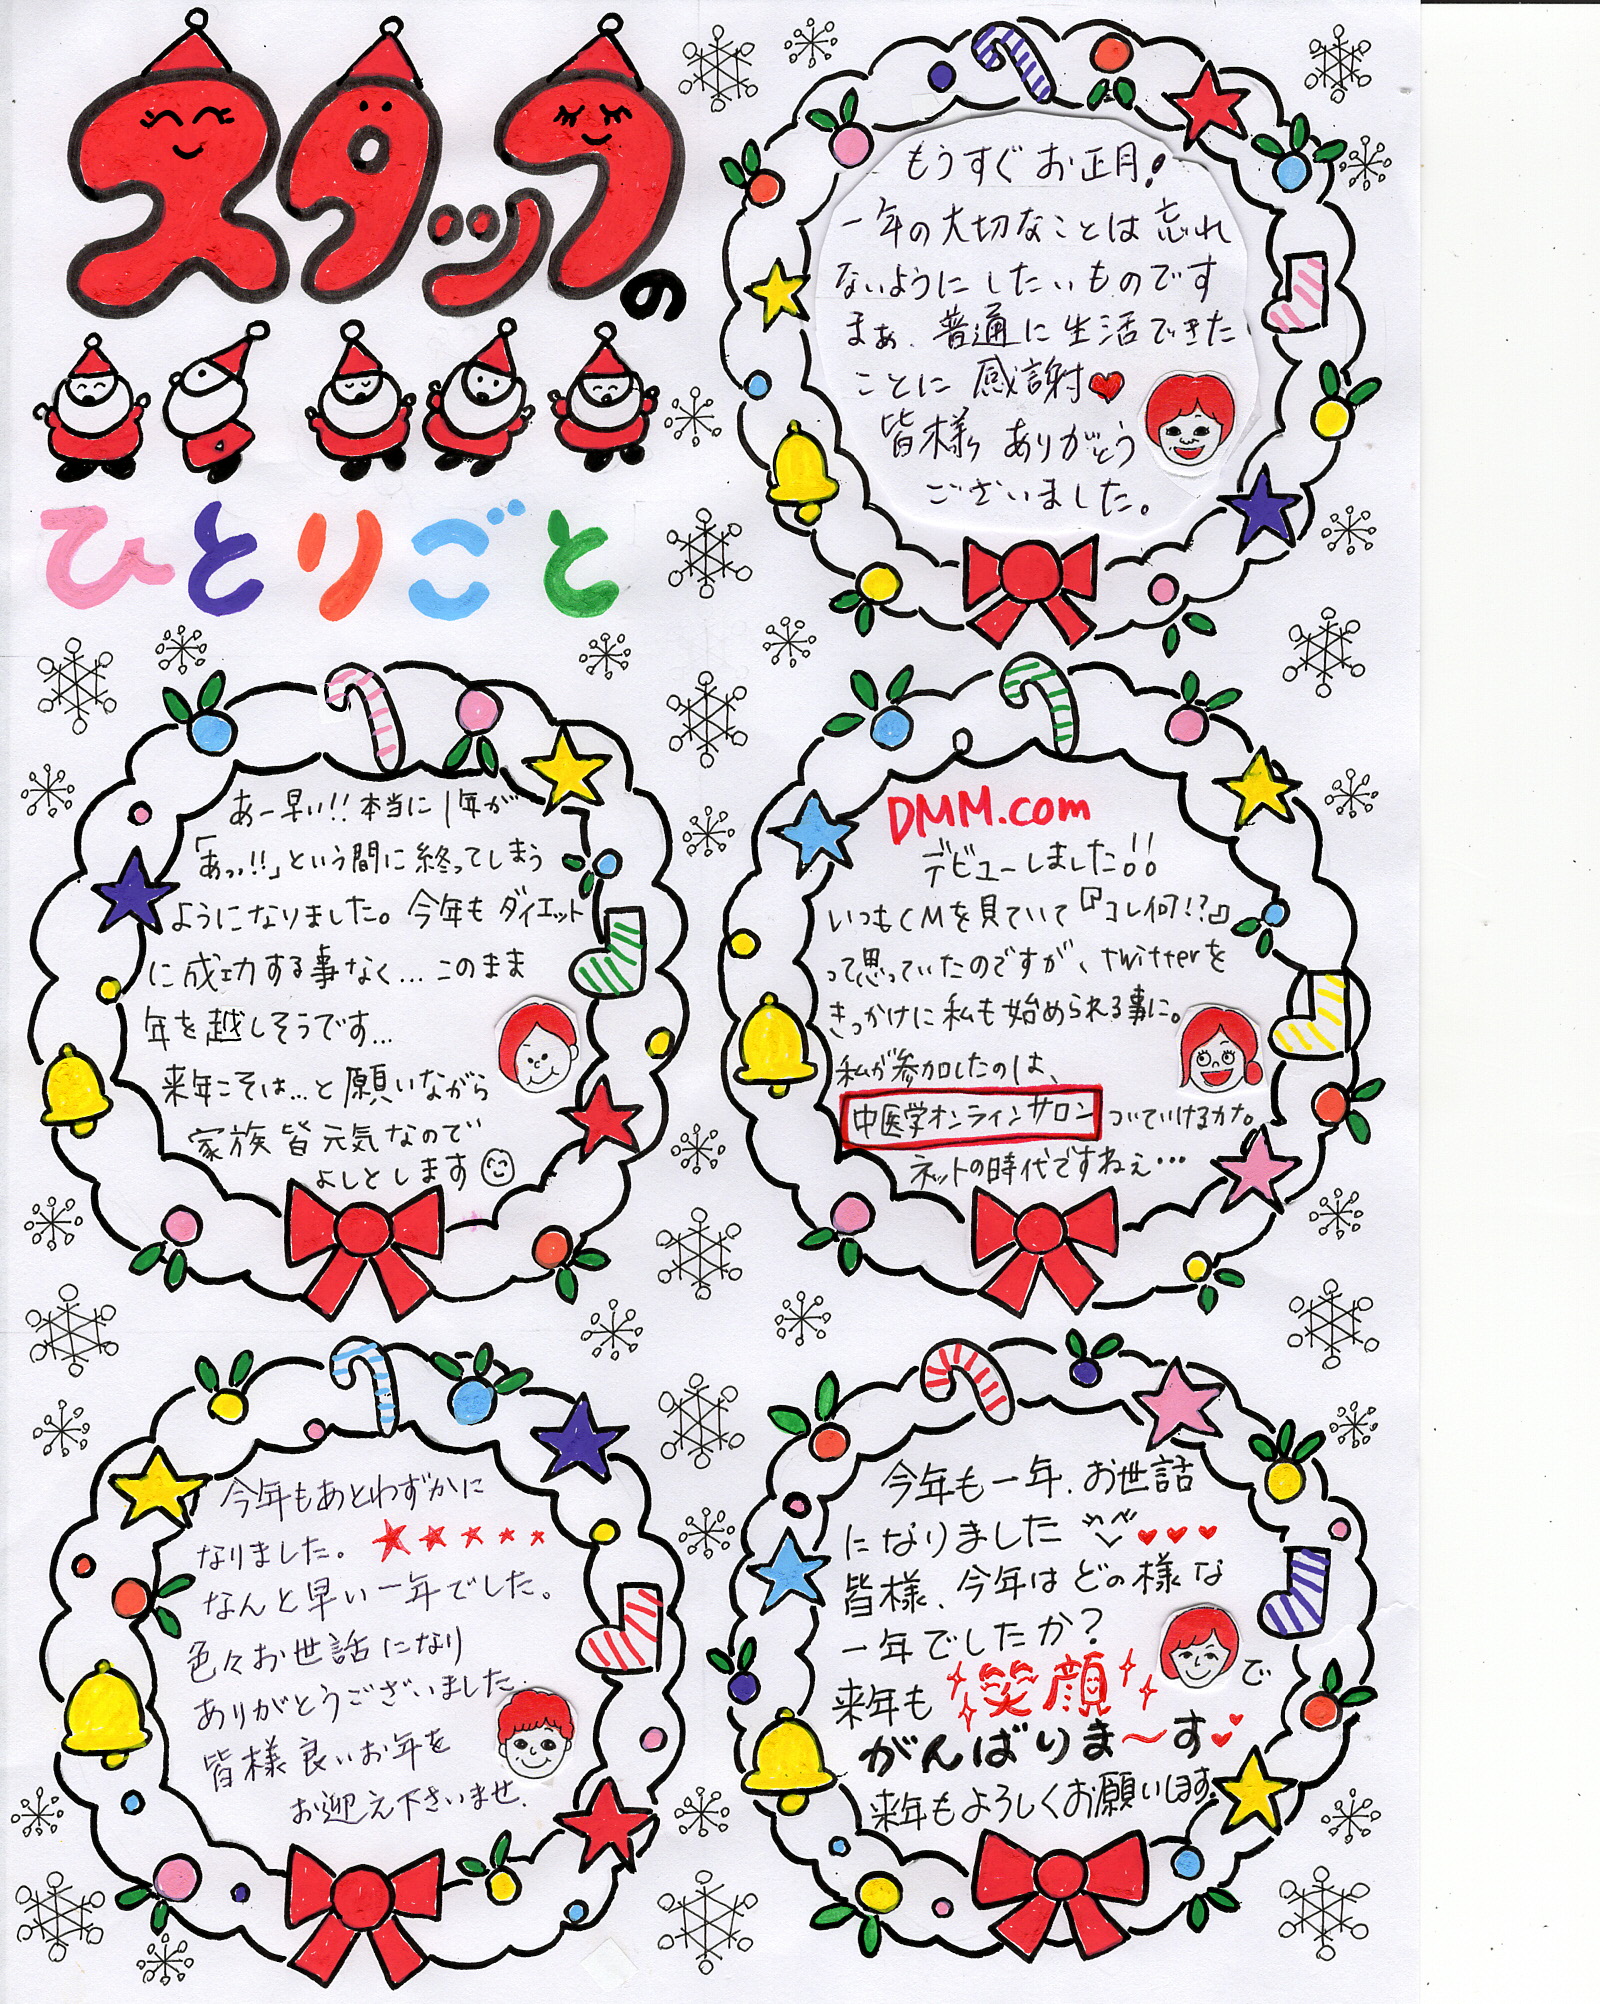 スタッフの
ひとりごと
もうすぐお正月!
一年の大切なことは忘れ
ないようにしたいものです
まぁ、普通に生活できた
ことに感謝♥
皆様ありがとう
ございました。
あー早い!!本当に1年が
「あっっ!!」という間に終ってしまう
ようになりました。今年もダイエット
に成功する事なく…このまま
年を越しそうです…
来年こそは…と願いながら
家族皆元気なので
よしとします
DMM.com
デビューしました!!
いつもCMを見ていて『コレ何!?』
って思っていたのですが、twitterを
きっかけに私も始められる事に。
私が参加したのは、
中医学オンラインサロン ついていけるカナ。
ネットの時代ですねぇ…
今年もあとわずかに
なりました。★★★★★
なんと早い一年でした。
色々お世話になり
ありがとうございました。
皆様良いお年を
お迎え下さいませ.
今年も一年、お世話
になりました♥♥♥
皆様、今年はどの様な
一年でしたか?
来年も笑顔で
がんばりま〜す♥
来年もよろしくお願いします。